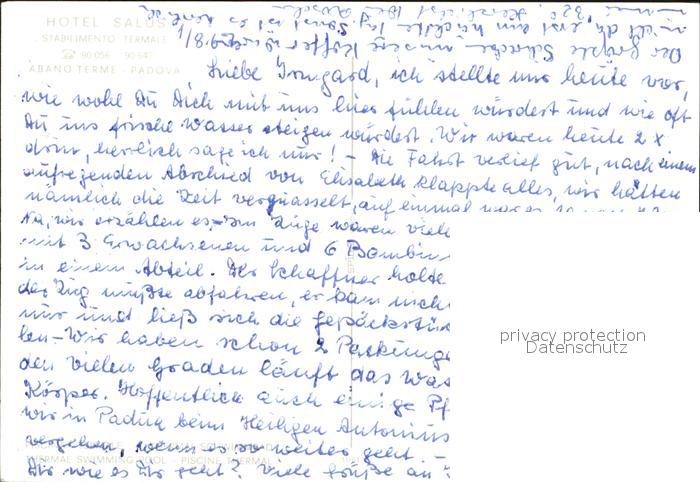 HOTEL SALUS
STABILIMENTO TERMALE
☎ 90 056 90 541
ABANO TERME - PADOVA
Liebe Irmgard, ich stellte mir heute vor,
wie wohl Du Dich mit uns hier fühlen würdest und wie oft
Du ins frische Wasser steigen würdest. Wir waren heute 2 x
drin, herrlich sage ich nur! - Die Fahrt verlief gut, nach einem
aufregenden Abschied von Elisabeth klappte alles, wir hätten
nämlich die Zeit verquasselt, auf einmal war es
Na, wir erzählen es - Im Zuge waren viele
mit 3 Erwachsenen und 6 Bambin
in einem Abteil. Der Schaffner holte
der Zug mußte abfahren, er kam nich
nur und ließ sich die Gepäckstü
ben - Wir haben schon 2 Packunge
den vielen Graden läuft das Was
Körper. Hoffentlich auch einige Pf
wir in Padua beim Heiligen Antonius
vergehen, wenn es so weiter geht. -
Dir wie es Dir geht? Viele Grüße an
THERMAL SWIMMING POOL - PISCINE THERMAL
privacy protection
Datenschutz